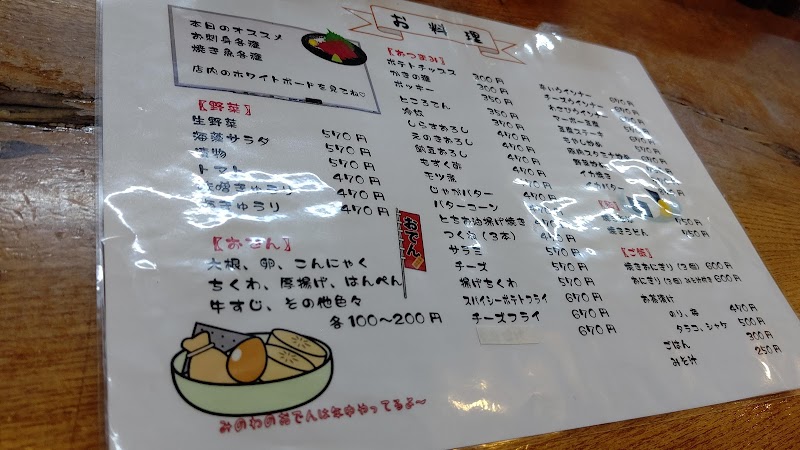 お料理
本日のオススメ
お刺身各種
焼き魚各種
店内のホワイトボードを見てね♡
【野菜】
生野菜 570円
海藻サラダ 570円
漬物 470円
トマト 470円
きゅうり 470円
きゅうり
【おでん】
大根、卵、こんにゃく
ちくわ、厚揚げ、はんぺん
牛すじ、その他色々
各100～200円
おでん
みのわのおでんは年中やってるよ～
【おつまみ】
ポテトチップス 300円
かきの種 300円
ポッキー 350円
ところてん 350円
冷奴
しらすおろし
えのきおろし
納豆おろし
もずく酢
モツ煮
じゃがバター
バターコーン
とちお油揚げ焼き
つくね(3本)
サラミ
チーズ 570円
揚げちくわ 570円
スパイシーポテトフライ 670円
チーズフライ 670円
チーズウインナー
わさびウインナー
マーボー豆腐
豆腐ステーキ
もやし炒め
イカ焼き
イカバター
焼きうどん 750円
【ご飯】
焼きおにぎり(2個) 600円
おにぎり(2個)みそ汁付き 600円
お茶漬け
のり、梅 470円
タラコ、シャケ 500円
ごはん 300円
みそ汁 250円